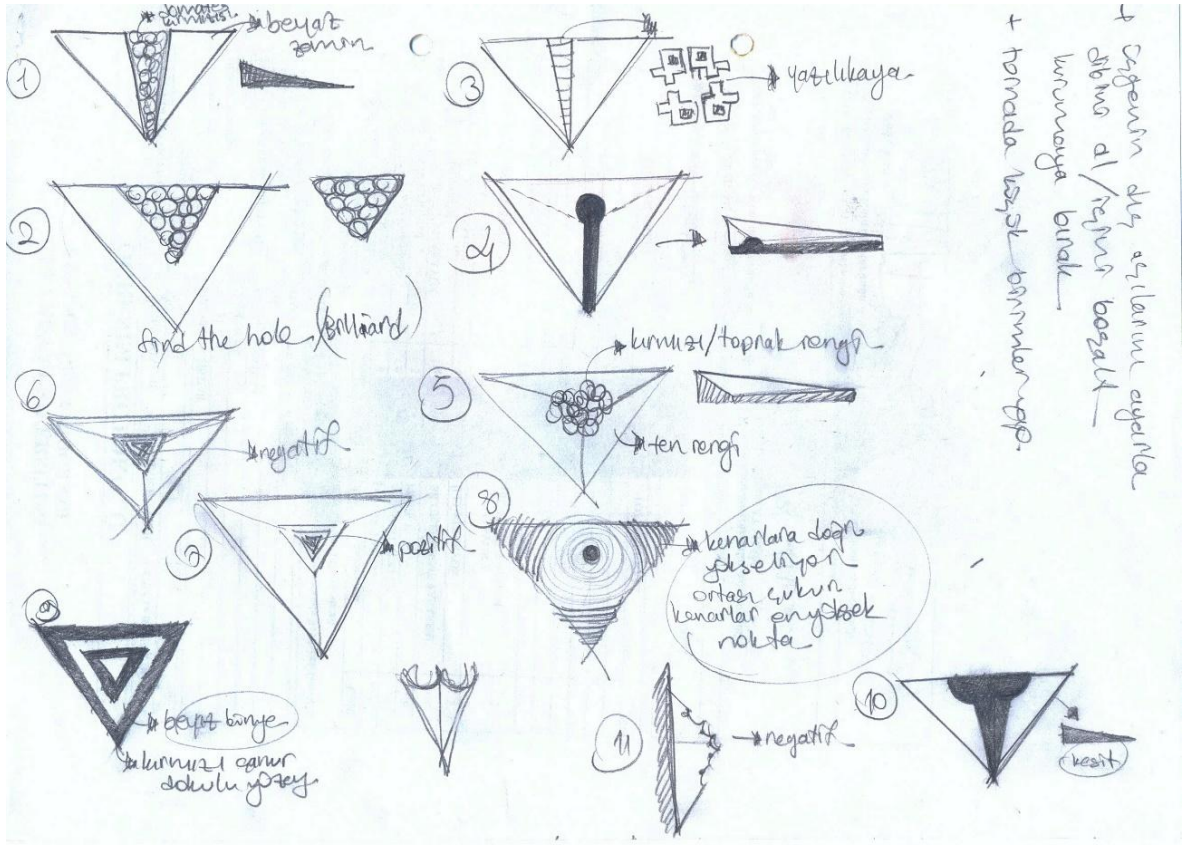 1
domates
kırmızısı
beyaz
zemin
3
yazılıkaya
2
find the hole (Billiard)
4
kırmızı/toprak rengi
5
ten rengi
6
negatif
7
pozitif
8
kenarlara doğru
yükseliyor
ortası çukur
kenarlar en yüksek
nokta
9
beyaz bünye
kırmızı çamur
dokulu yüzey
11
negatif
10
kesit
+ üçgenin dış açılarını ayarla
dibini al/içini boşalt
kurumaya bırak
+ tornada küçük birimler yap